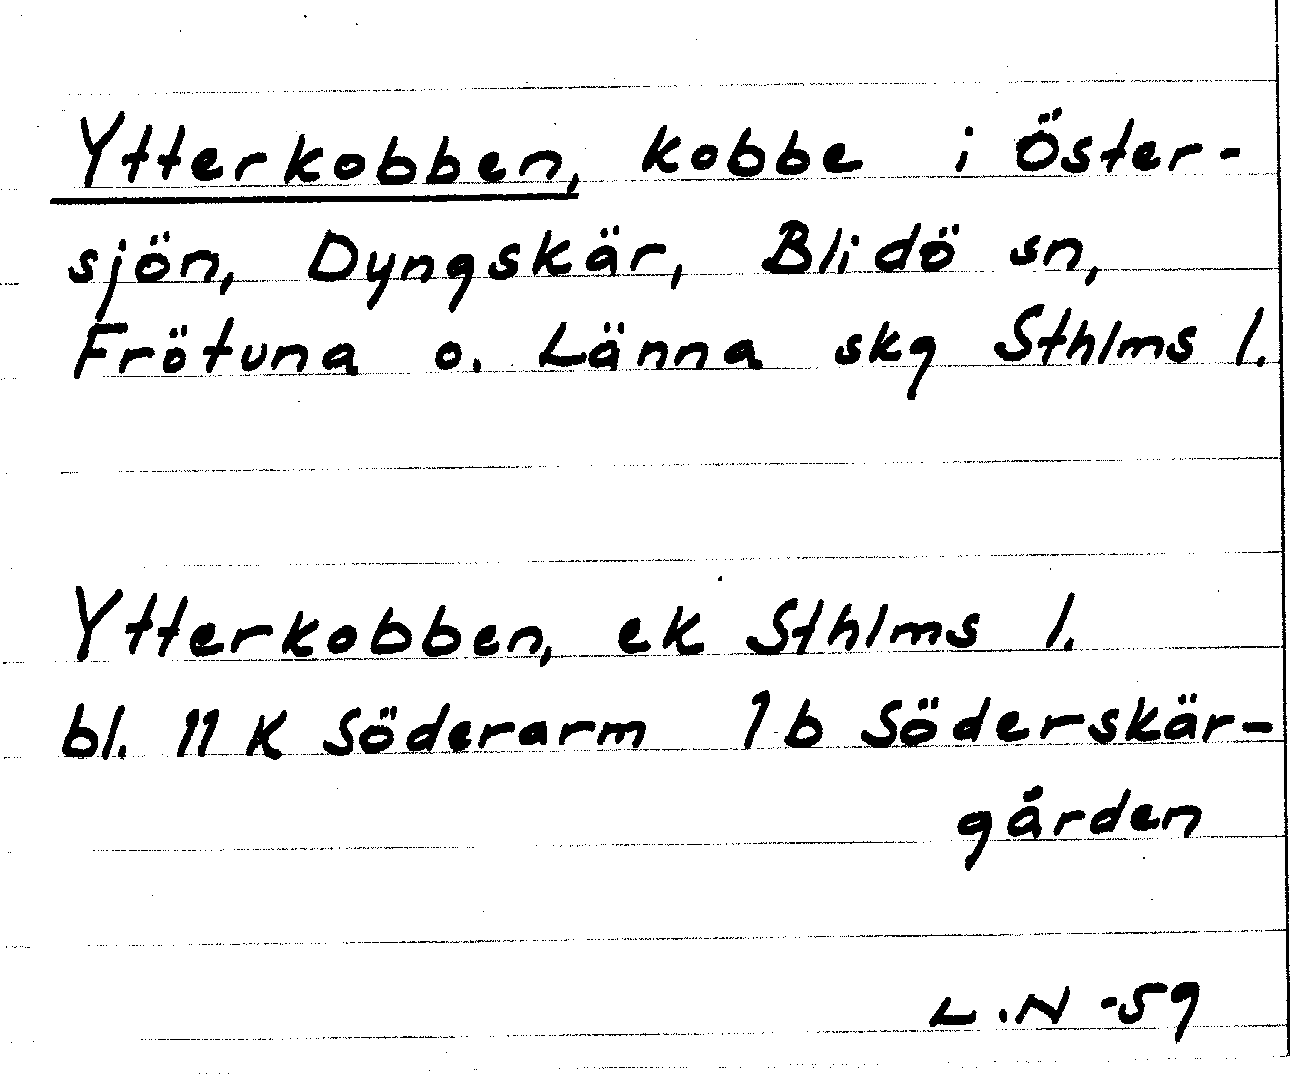 Ytterkobben, kobbe i Öster-
sjön, Dyngskär, Blidö sn,
Frötuna o. Länna skg Sthlms l.
Ytterkobben, ek Sthlms l.
bl. 11 K Söderarm 1 b Söderskär-
gården
L.N -59